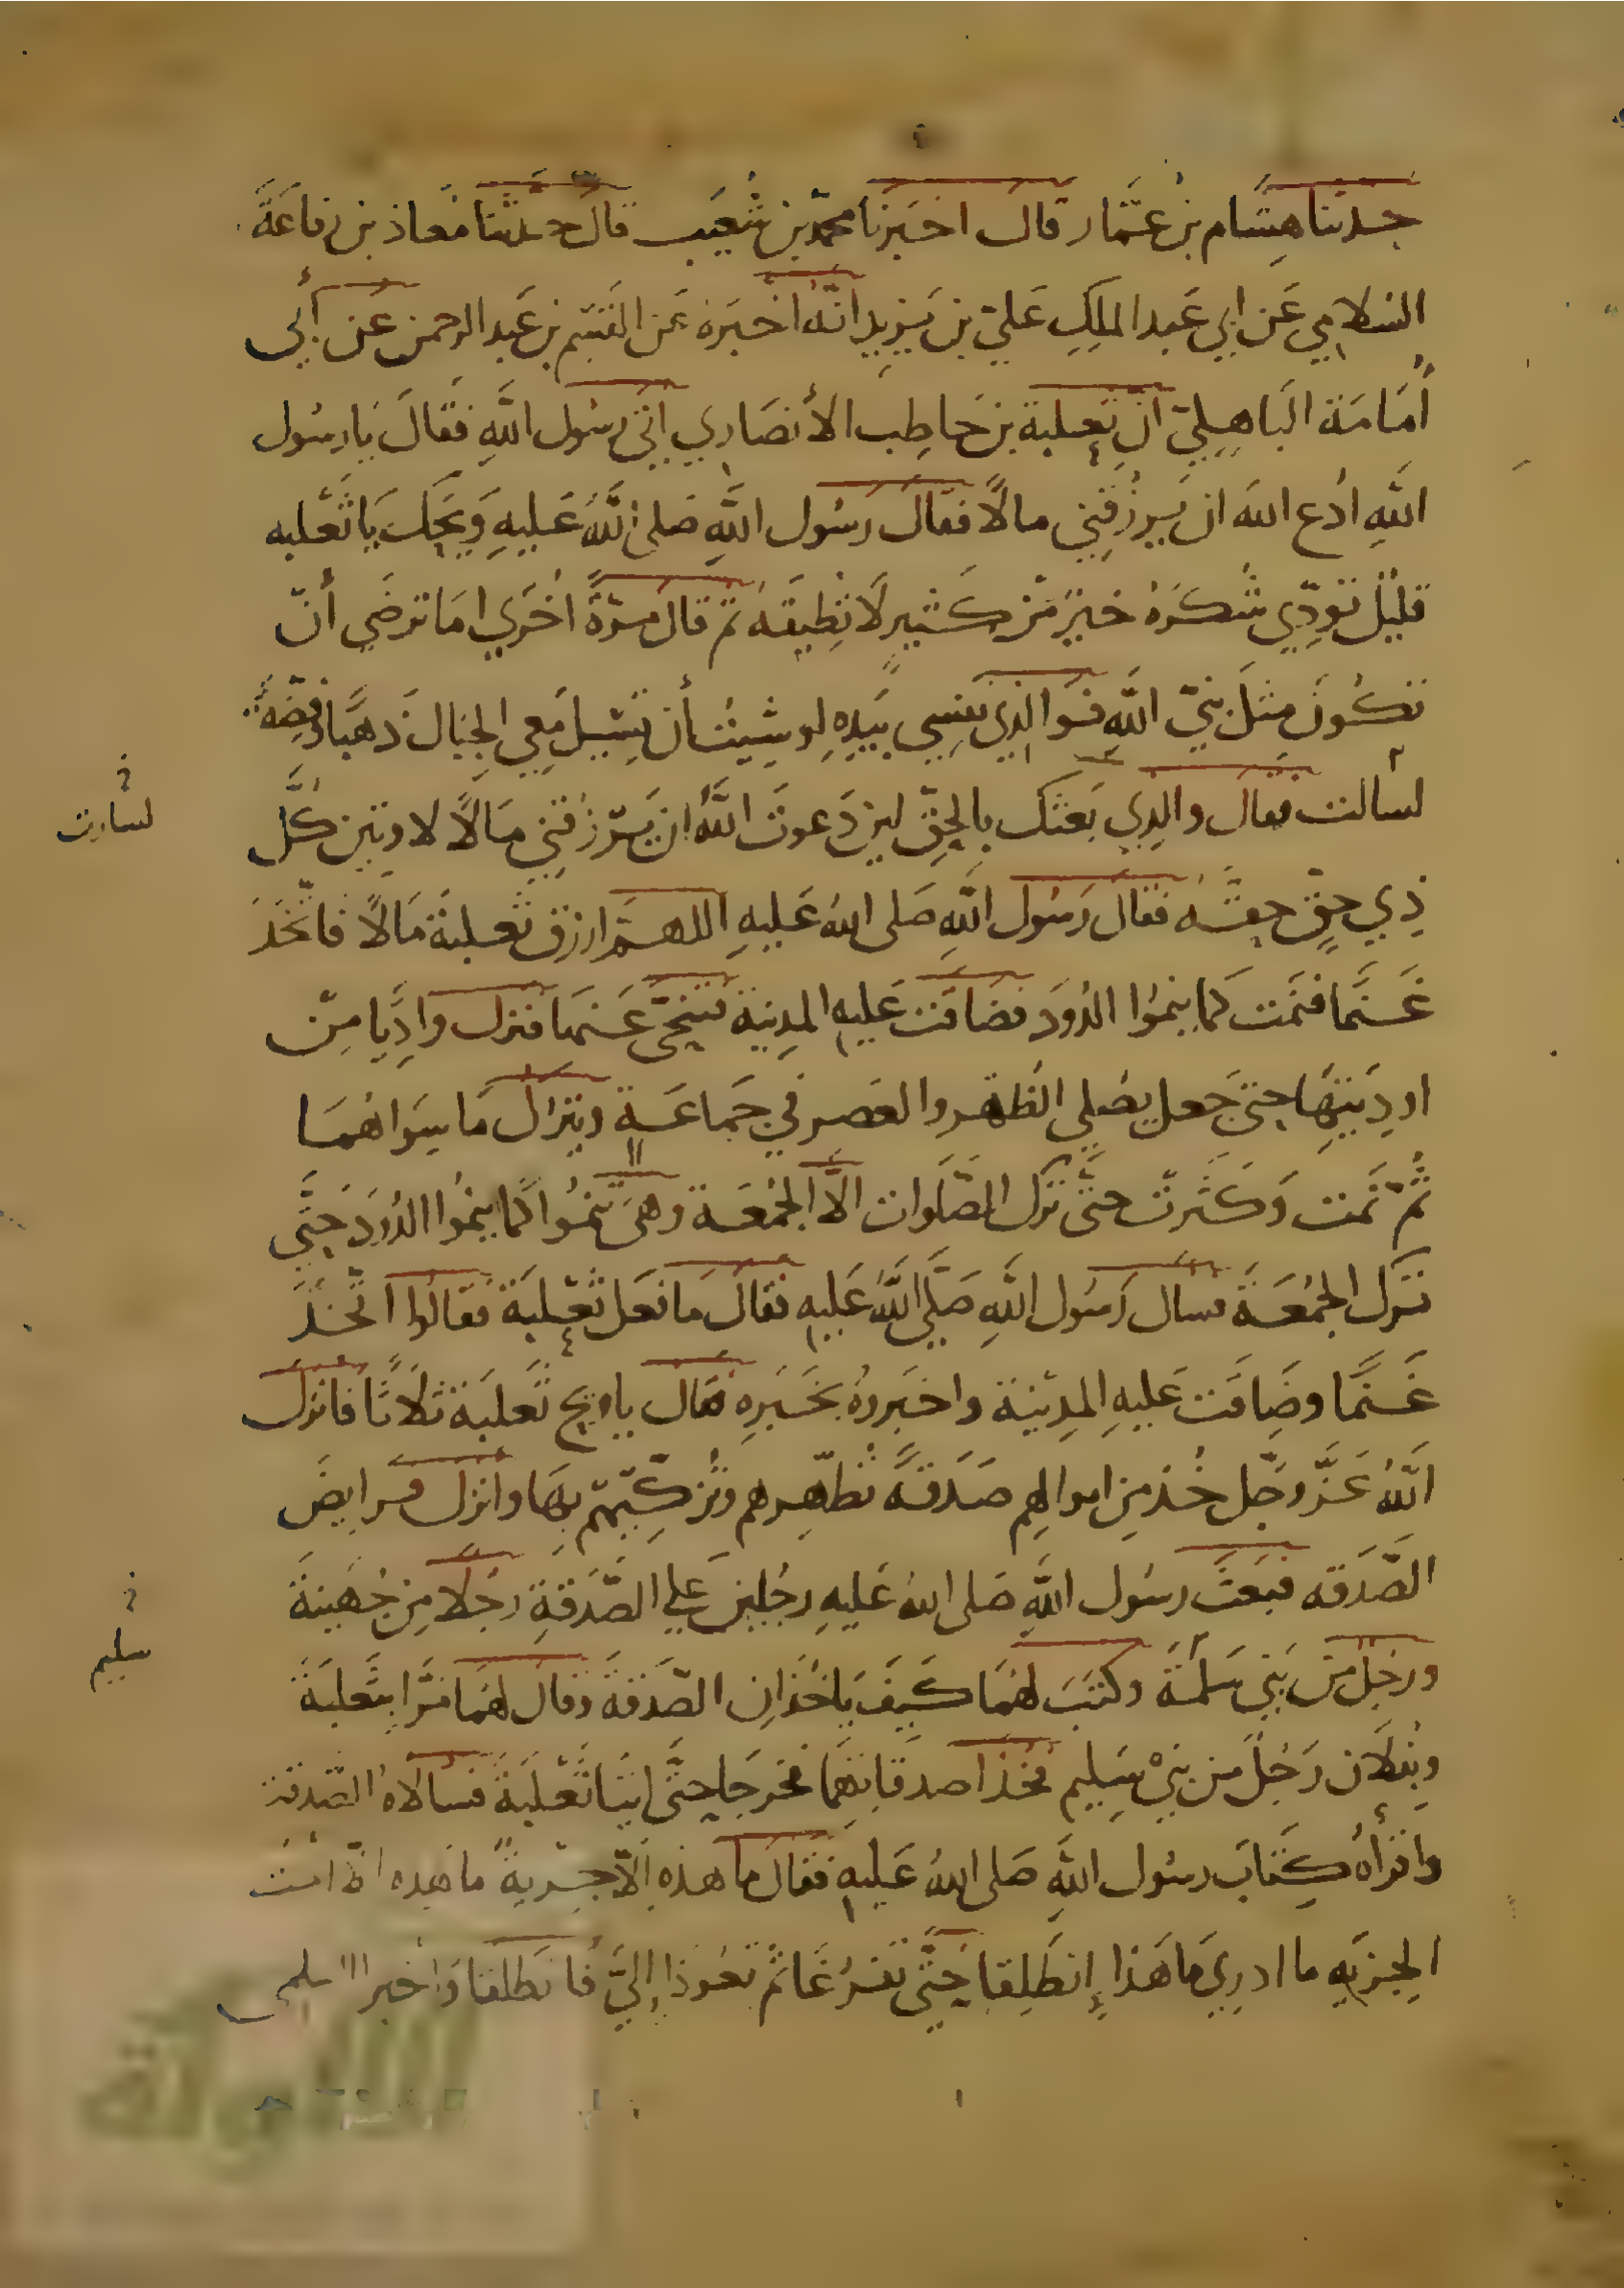 حدثنا هشام بن عمار قال اخبرنا محمد بن شعيب قال حدثنا معاذ بن رفاعة
السلامي عن ابي عبد الملك علي بن يزيد انه اخبره عن القسم بن عبد الرحمن عن أبي
أمامة الباهلي ان ثعلبة بن حاطب الأنصاري اتى رسول الله فقال يا رسول
الله ادع الله ان يرزقني مالا فقال رسول الله صلى الله عليه ويحك يا ثعلبه
قليل تودي شكره خير من كثير لا تطيقه ثم قال مرة اخرى اما ترضي أن
تكون مثل نبي الله فوالذي نفسي بيده لو شيت أن تسيل معي الجبال ذهبا وفضة
لسالت فقال والذي بعثك بالحق لين دعوت الله ان يرزقني مالا لاوتين كل
ذي حق حقه فقال رسول الله صلى الله عليه اللهم ارزق ثعلبة مالا فاتخذ
غنما فنمت كما ينموا الدود فضاقت عليه المدينة فتنحى عنها فنزل واديا من
اوديتها حتى جعل يصلي الظهر والعصر في جماعة ويترك ما سواهما
ثم نمت وكثرت حتى ترك الصلوات الا الجمعة وهى تنموا كما ينموا الدود حتى
ترك الجمعة فسال رسول الله صلى الله عليه فقال ما فعل ثعلبة فقالوا اتخذ
غنما وضاقت عليه المدينة واخبروه بخبره فقال يا ويح ثعلبة ثلاثا فانزل
الله عز وجل خذ من اموالهم صدقة تطهرهم وتزكيهم بها وانزل فرايض
الصدقه فبعث رسول الله صلى الله عليه رجلين على الصدقة رجلا من جهينة
ورجل من بني سلمة وكتب لهما كيف ياخذان الصدقة وقال لهما مرا بثعلبة
وبفلان رجل من بني سليم فخذا صدقاتهما فخرجا حتى اتيا ثعلبة فسالاه الصدقة
واقرأه كتاب رسول الله صلى الله عليه فقال ما هذه الا جزية ما هذه الا اخت
الجزيه ما ادري ما هذا إنطلقا حتى تفرغا ثم تعودا إلي فانطلقا واخبرا السلمى
لسارت
سليم